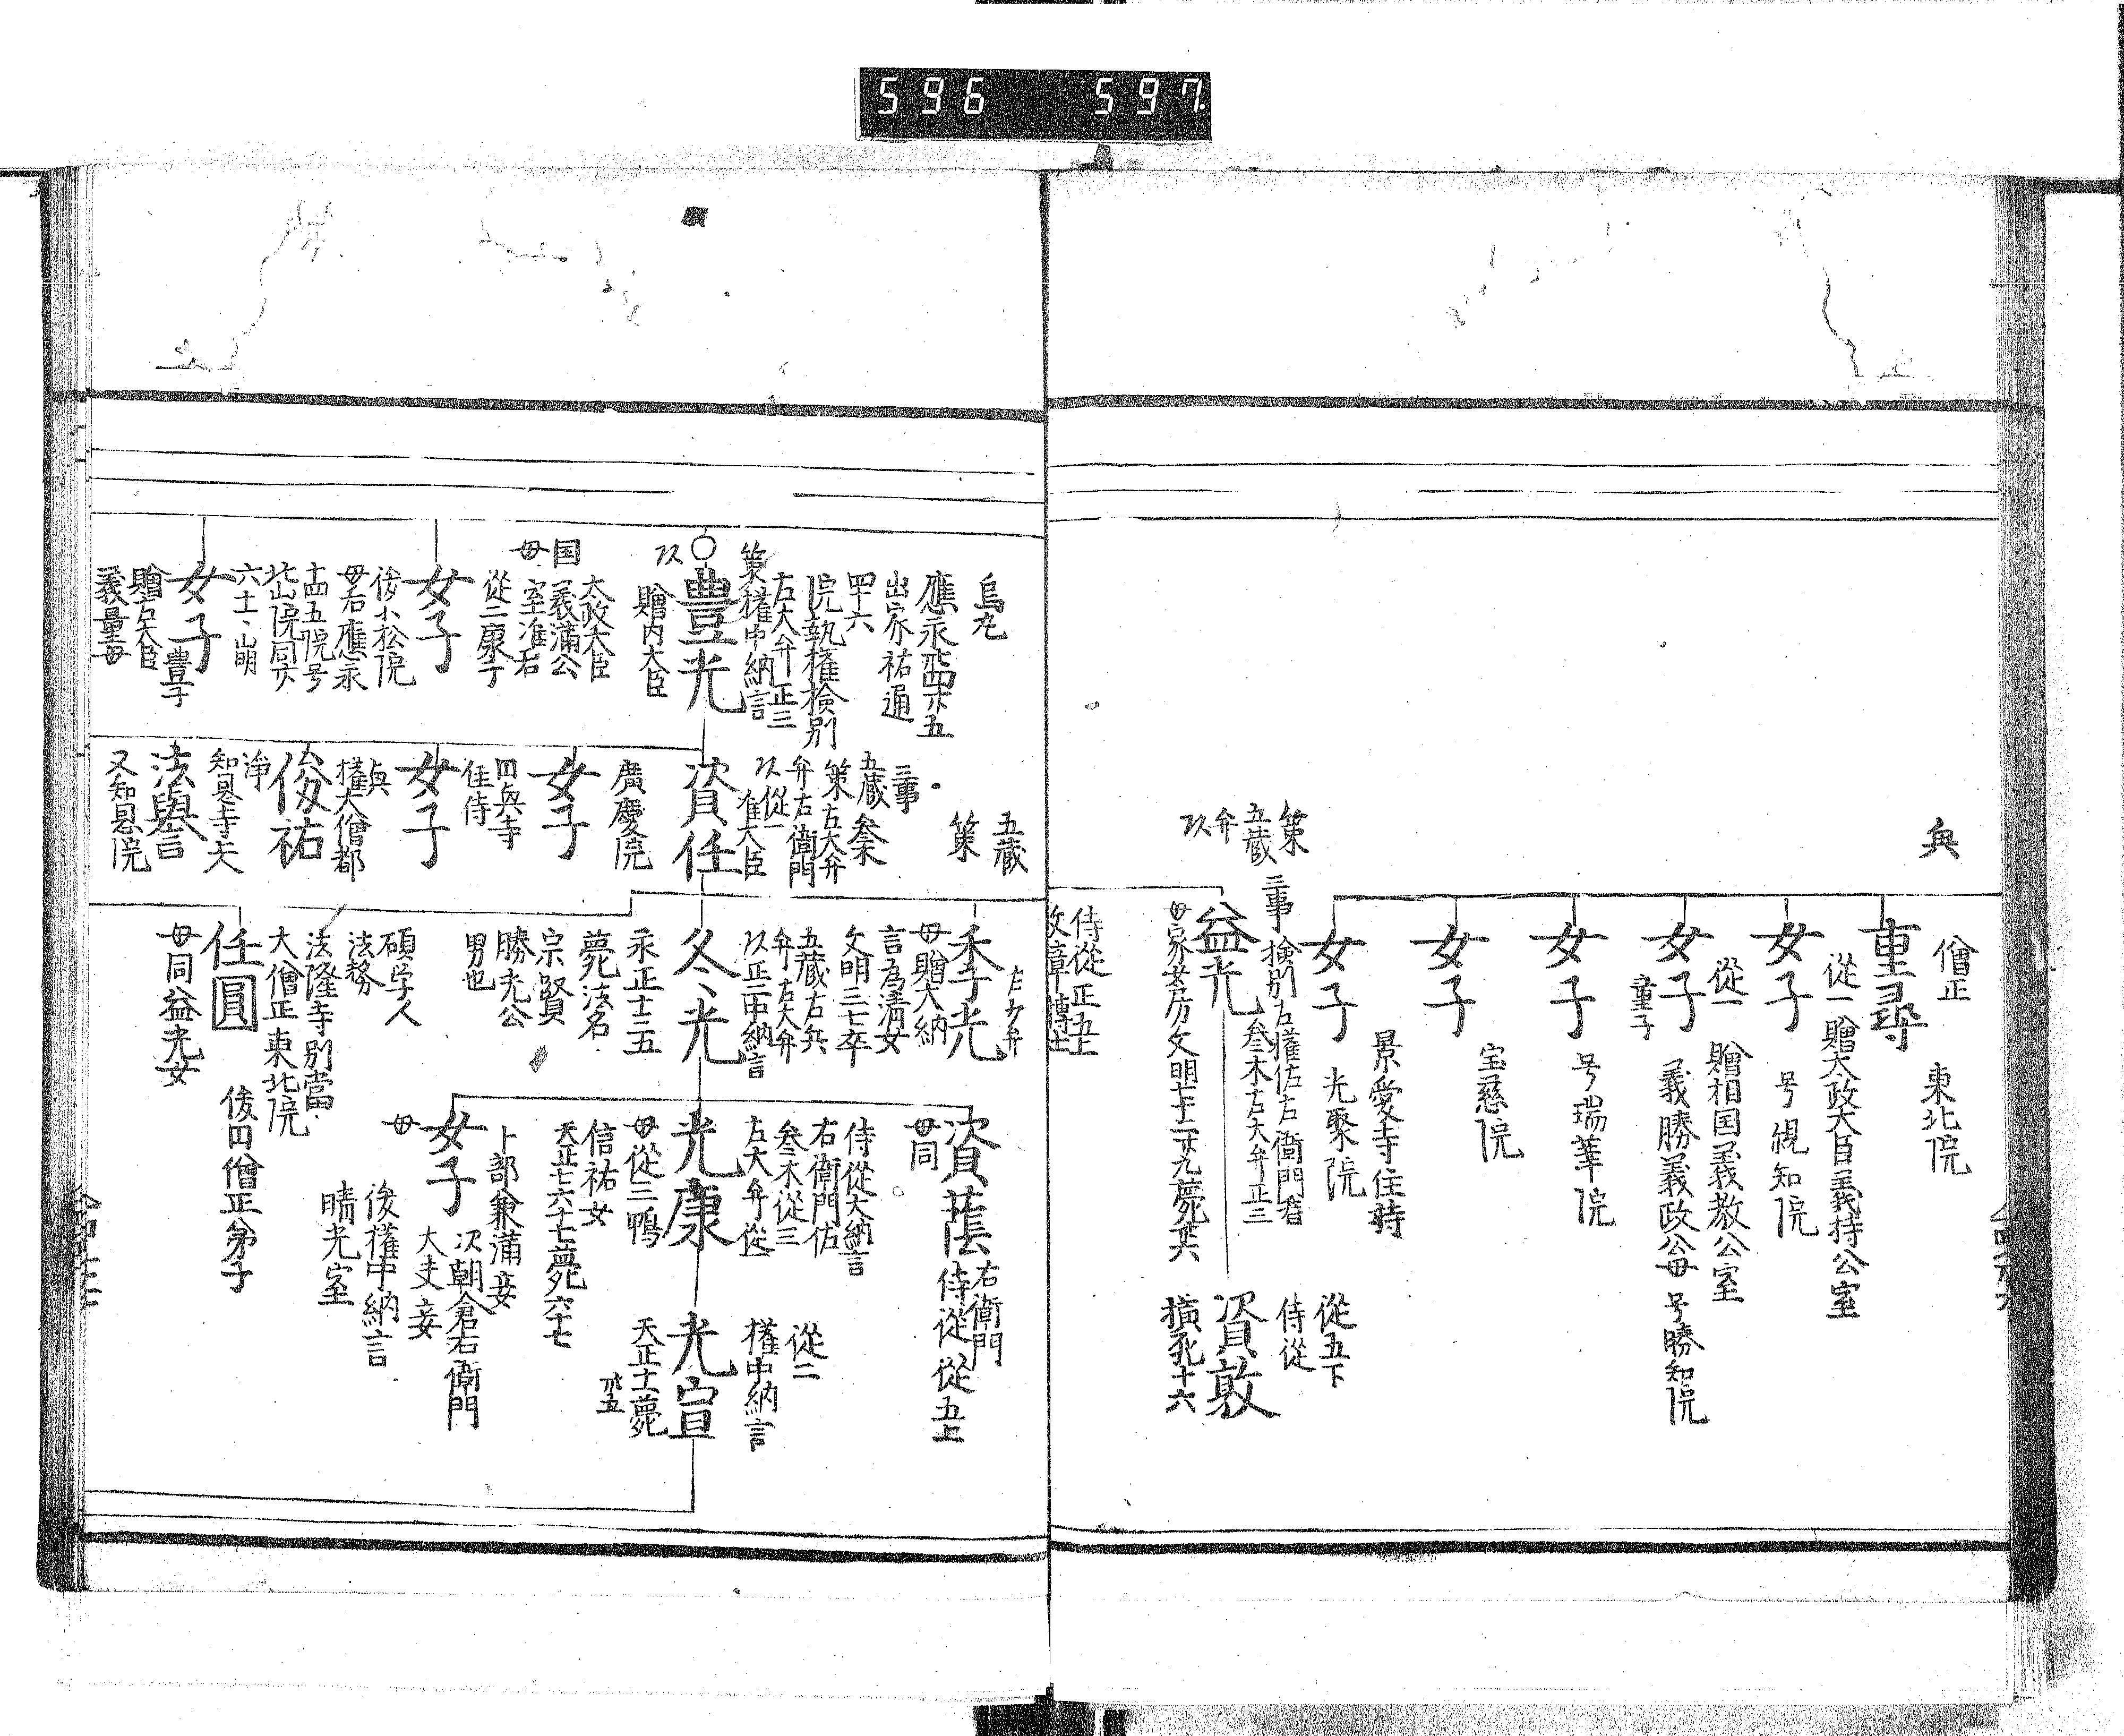 596 597
兵
僧正
東北院
重尋
從一贈太政大臣義持公室
女子
号規知院
從一
贈相国義教公室
女子
重子
義勝義政公母
号勝知院
女子
号瑞華院
女子
宝慈院
景愛寺住持
女子
光聚院
策
五蔵
三事
弁
以
益光
母家女房文明七十二廿九薨卅六
從五下
侍從
資敦
横死十六
侍從正五上
烏丸
出家祐通
四十六
院執権検別
左大弁正三
策権中納言
以
豊光
贈内大臣
太政大臣
国義満公
室准右
母
從二康子
女子
後小松院
母右應永
十四五院号
女子
豊子
贈左大臣
義量母
五蔵
策
三事
五蔵参木
策左大弁
弁右衛門
以從一
准大臣
資任
廣慶院
女子
四兵寺
住侍
女子
兵
権大僧都
俊祐
浄
知恩寺大
法譽
又知恩院
左少弁
季光
母贈大納
言為清女
文明三七卒
五蔵右兵
弁右大弁
以正二中納言
冬光
永正十三五
薨法名
宗賢
勝光公
男也
碩学人
法務
法隆寺別當
大僧正東北院
任圓
俊円僧正弟子
母同益光女
資蔭
母同
右衛門
侍從從五上
侍從大納言
右衛門佐
参木從三
左大弁從一
光康
母從三鴨
信祐女
天正七六十七薨六十七
卜部兼満妾
女子
母
次朝倉右衛門
大夫妾
後権中納言
晴光室
從二
権中納言
光宣